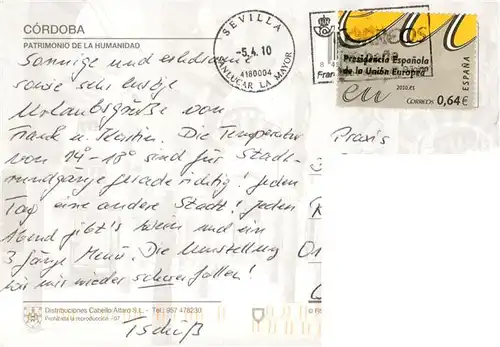 CÓRDOBA
PATRIMONIO DE LA HUMANIDAD
Sonnige und erholsame
sowie sehr lustige
Urlaubsgrüße von
Frank u. Kerstin. Die Temperatur
von 14°-18° sind für Stadt-
rundgänge gerade richtig! Jeden
Tag eine andere Stadt! Jeden
Abend gibt's Wein und ein
3 Gänge Menü. Die Umstellung
wird mir wieder schwer fallen!
Tschüß
SEVILLA
-5.4.10
4180004
SANLUCAR LA MAYOR
CORREOS
Fran
Presidencia Española
de la Unión Europea
eu
2010.ES
CORREOS 0,64€
ESPAÑA
Praxis
Distribuciones Cabello Alfaro S.L. - Tel.: 957 478230
Prohibida la reproducción